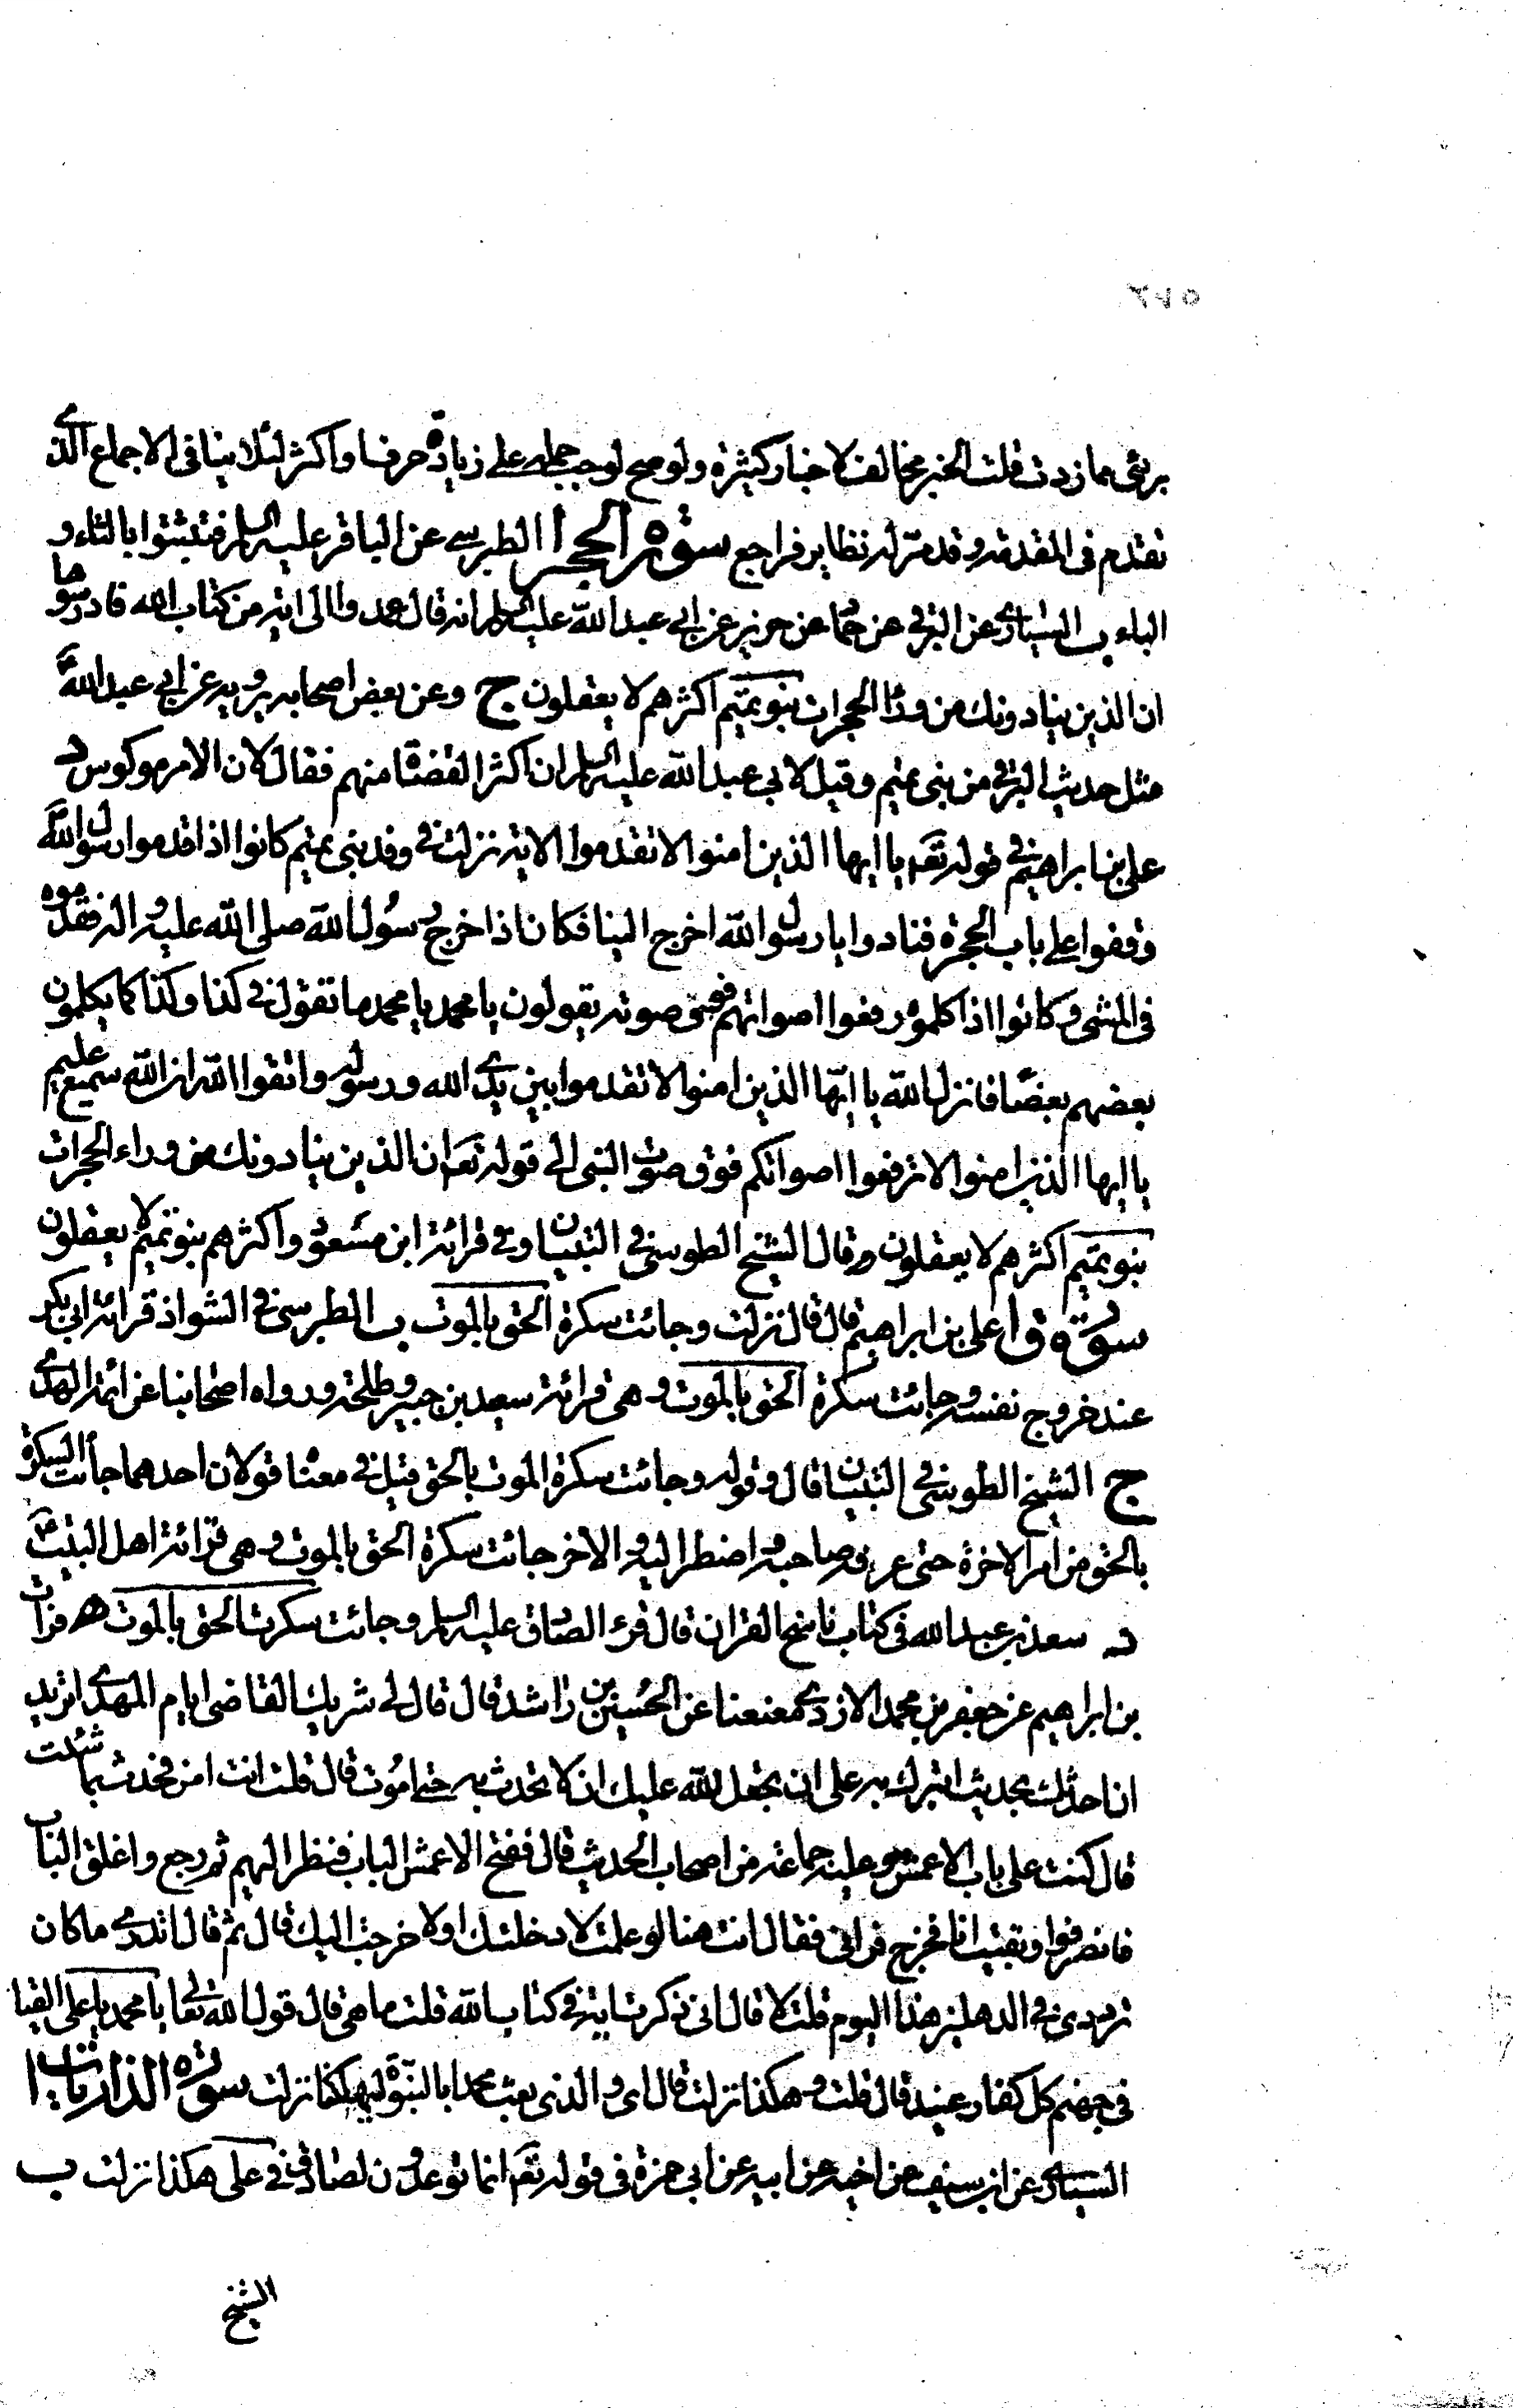 برئى مما زدت قلت الخبر مخالف لاخبار كثيرة ولو صح لوجب حمله على زيادة حرف او اكثر لئلا ينافى الاجماع الذى
تقدم فى المقدمة وقد مر له نظاير فراجع سورة الحجر ا الطبرسى عن الباقر عليه السلم فتثبتوا بالثاء و
الباء ب السيارى عن البرقى عن حماد عن حريز عن ابى عبد الله عليه السلم انه قال عمدوا الى اية من كتاب الله فادرسوها
ان الذين ينادونك من وراء الحجرات بنو تميم اكثرهم لا يعقلون ج وعن بعض اصحابه يرويه عن ابى عبد الله ع
مثل حديث البرقى من بنى تميم وقيل لابى عبد الله عليه السلم ان اكثر القضاة منهم فقال لان الامر موكوس د
على بن ابراهيم فى قوله تعه يا ايها الذين امنوا لا تقدموا الاية نزلت فى وفد بنى تميم كانوا اذا قدموا رسول الله ص
وقفوا على باب الحجرة فنادوا يا رسول الله اخرج الينا فكان اذا خرج رسول الله صلى الله عليه واله فقدموه
فى المشى وكانوا اذا كلموه رفعوا اصواتهم فوق صوته يقولون يا محمد يا محمد ما تقول فى كذا وكذا كما يكلمون
بعضهم بعضا فانزل الله يا ايها الذين امنوا لا تقدموا بين يدى الله ورسوله واتقوا الله ان الله سميع عليم
يا ايها الذين امنوا لا ترفعوا اصواتكم فوق صوت النبى الى قوله تعه ان الذين ينادونك من وراء الحجرات
بنو تميم اكثرهم لا يعقلون ه قال الشيخ الطوسى فى التبيان وفى قرائة ابن مسعود واكثرهم بنو تميم لا يعقلون
سورة ق ا على بن ابراهيم قال قال نزلت وجائت سكرة الحق بالموت ب الطبرسى فى الشواذ قرائة ابى بكر
عند خروج نفسه وجائت سكرة الحق بالموت وهى قرائة سعيد بن جبير وطلحة ورواه اصحابنا عن ائمة الهدى
ج الشيخ الطوسى فى التبيان قال وقوله وجائت سكرة الموت بالحق قيل فى معناه قولان احدهما جائت السكرة
بالحق من امر الاخرة حتى عرفه صاحبه واضطر اليه والاخر جائت سكرة الحق بالموت وهى قرائة اهل البيت ع
د سعد بن عبد الله فى كتاب ناسخ القران قال قرء الصادق عليه السلم وجائت سكرت الحق بالموت ه فرات
بن ابراهيم عن جعفر بن محمد الازدى معنعنا عن الحسين بن راشد قال قال لى شريك القاضى ايام المهدى اتريد
ان احدثك بحديث اتبرك به على ان تجعل لله عليك ان لا تحدث به حتى اموت قال قلت انت امن فحدث بما شئت
قال كنت على باب الاعمش وعليه جماعة من اصحاب الحديث قال ففتح الاعمش الباب فنظر اليهم ثم رجع واغلق الباب
فانصرفوا وبقيت انا فخرج فرانى فقال انت هنا لو علمت لادخلتك او لاخرجت اليك قال ثم قال اتدرى ما كان
ترددى فى الدهليز هذا اليوم قلت لا قال انى ذكرت اية فى كتاب الله قلت ما هى قال قول الله تعالى يا محمد يا على القيا
فى جهنم كل كفار عنيد قال قلت وهكذا نزلت قال اى والذى بعث محمدا بالنبوة لهكذا نزلت سورة الذاريات ا
السيارى عن ابن سيف عن اخيه عن ابيه عن ابى حمزة فى قوله تعه انما توعدون لصادق فى على هكذا نزلت ب
الشيخ